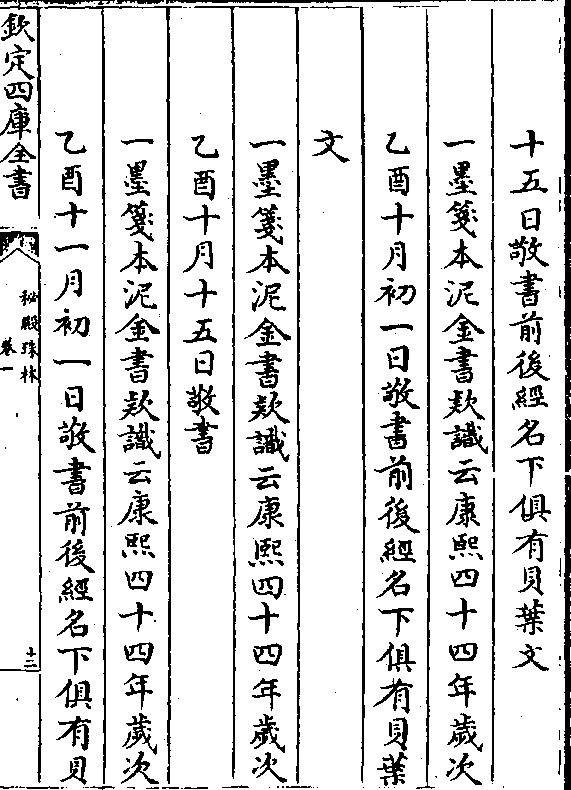 十五日敬書前後經名下俱有貝葉文
一墨箋本泥金書款識云康熙四十四年歲次
乙酉十月初一日敬書前後經名下俱有貝葉
文
一墨箋本泥金書款識云康熙四十四年歲次
乙酉十月十五日敬書
一墨箋本泥金書款識云康熙四十四年歲次
乙酉十一月初一日敬書前後經名下俱有貝
欽定四庫全書
秘殿珠林
卷一
十二